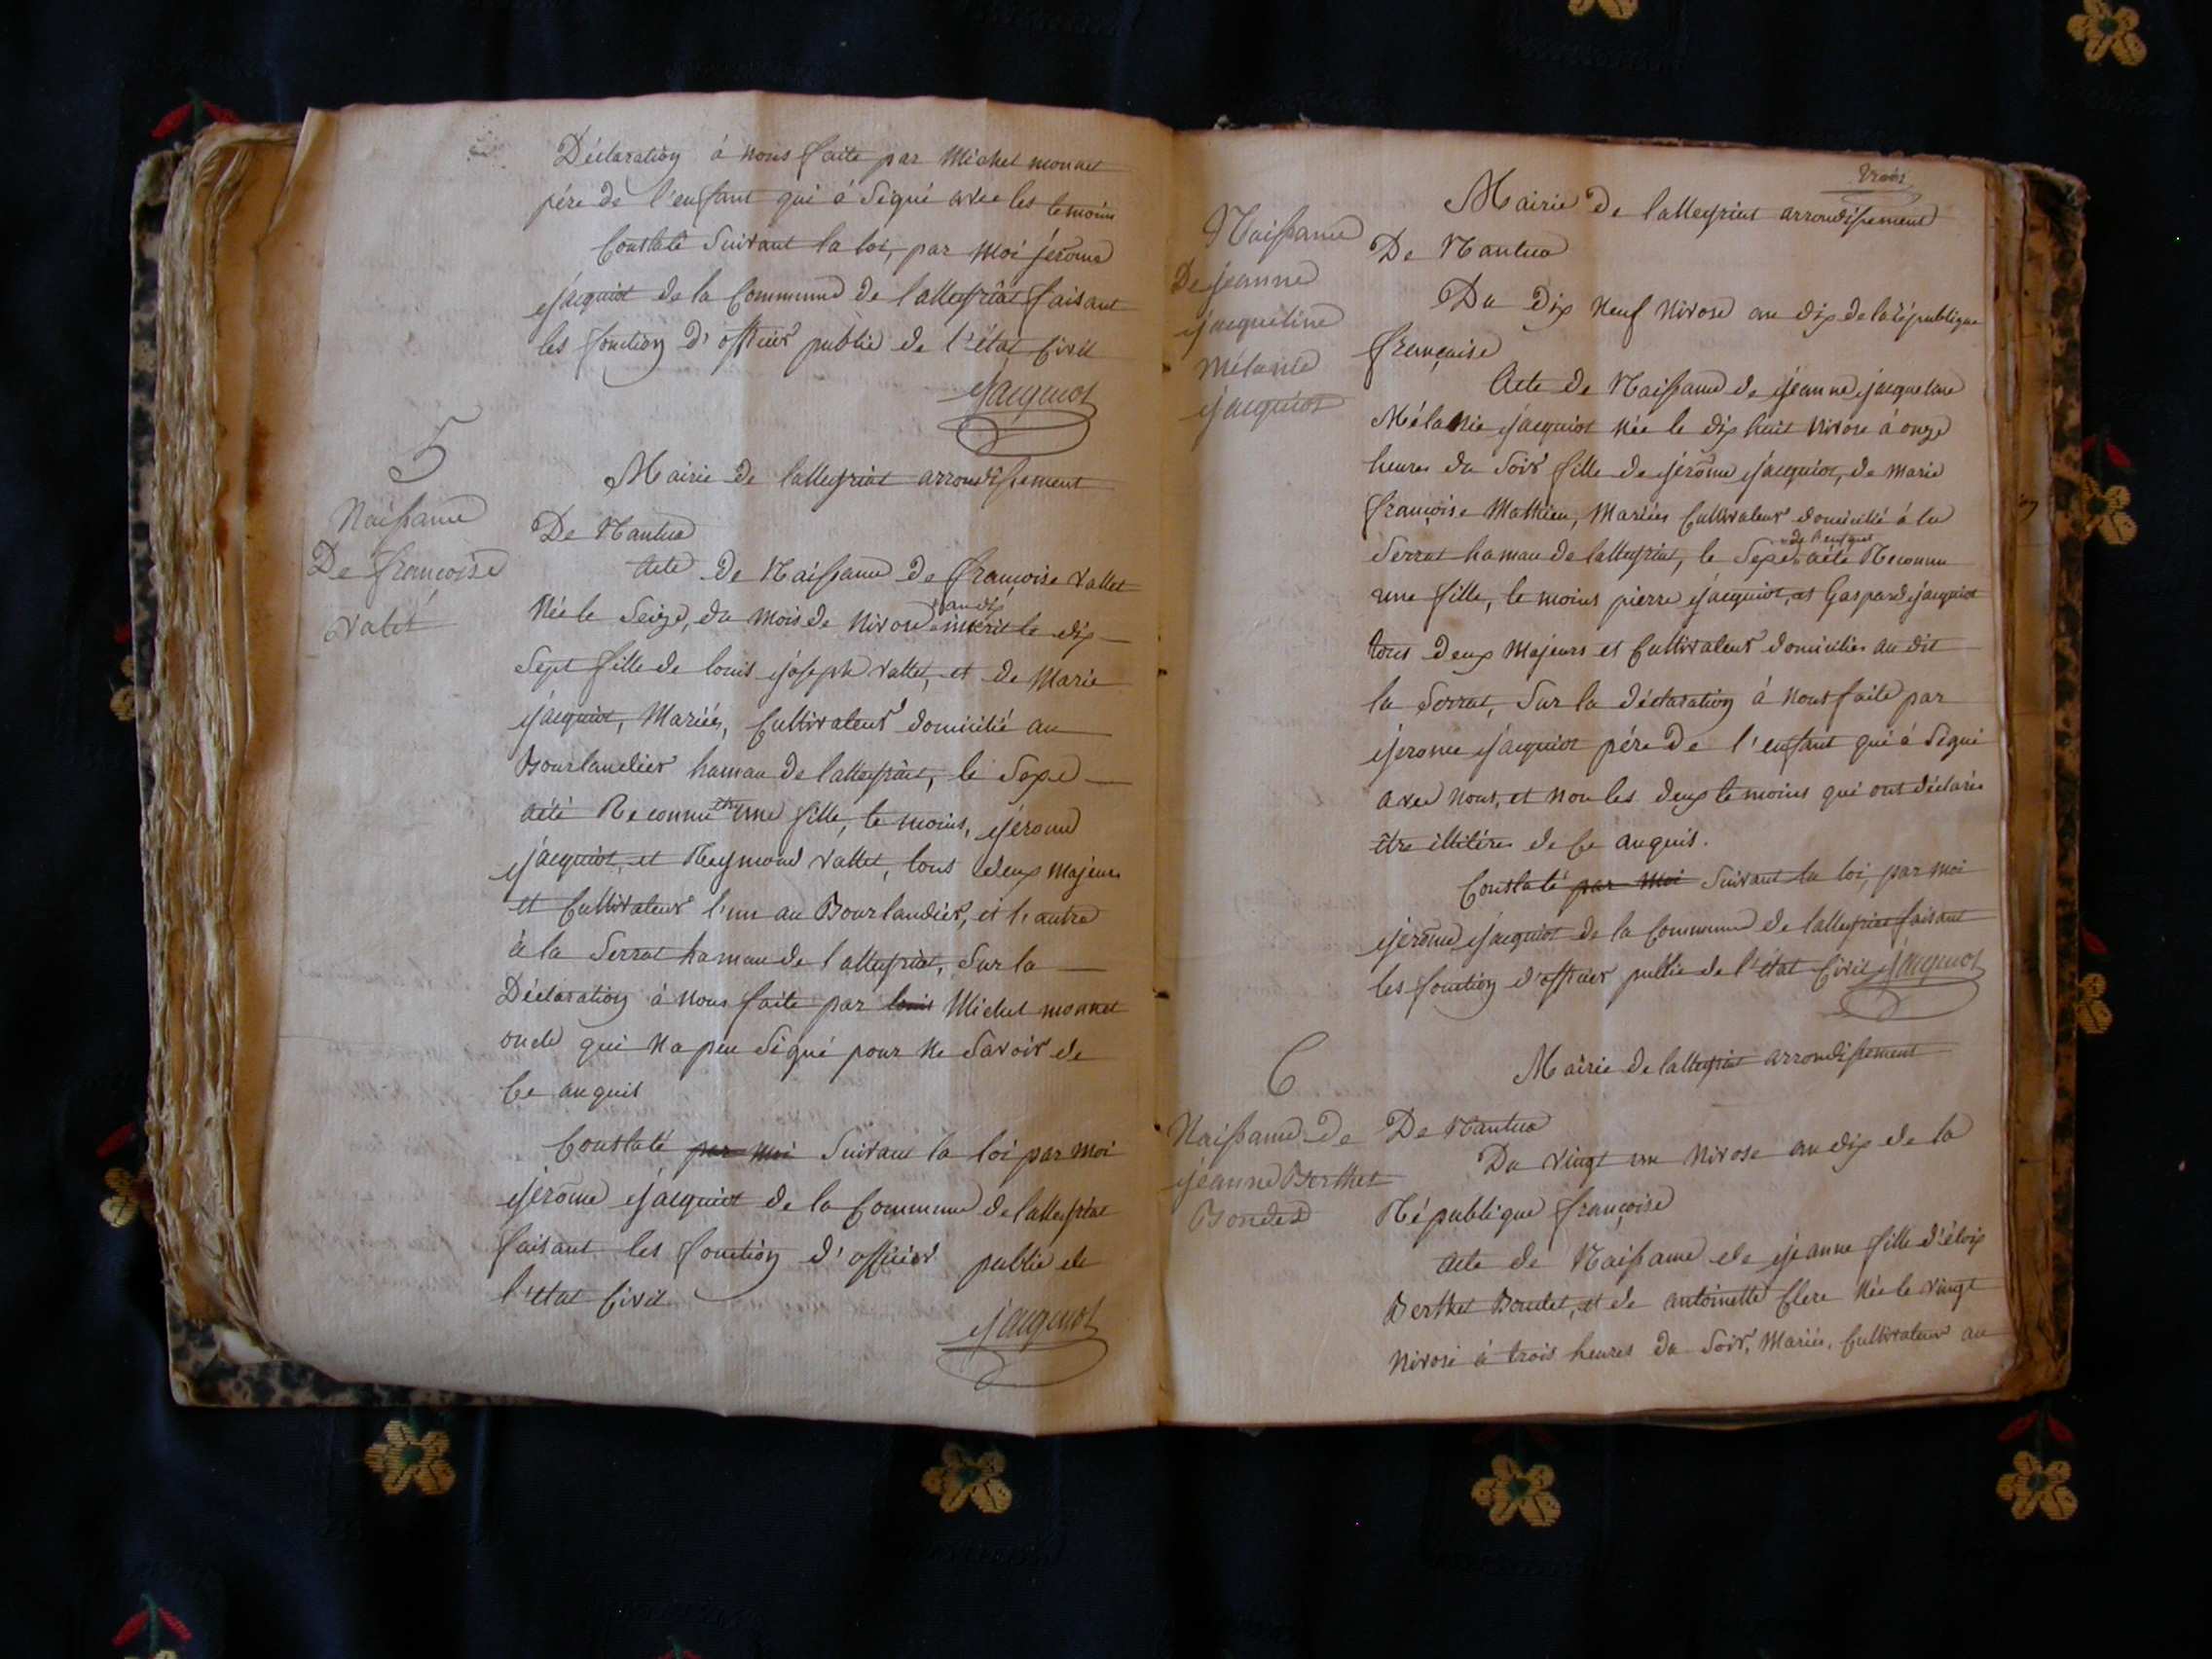 Déclaration à nous faite par Michel monnet
pére de l'enfant qui à Signé avec les temoins
Constaté Suivant la loi, par moi jerome
jacquiot de la Commune de lalleyriat faisant
les fonction d'officier public de l'état Civil
jacquiot
5
Naissance
De françoise
valet
Mairie de lalleyriat arrondissement
De Nantua
Acte De Naissance De françoise vallet
Née le Seize, du mois de Nivose an dix inscrit le dix
Sept fille de louis joseph vallet, et de Marie
jacquiot, Mariés, Cultivateur domicilié au
Bourlandier hamau de lalleyriat, le Sexe
aété Reconnu être une fille, temoins, jérome
jacquiot, et Reymond vallet, tous deux majeurs
et Cultivateur l'un au Bourlandier, et l'autre
à la Serrat hamau de lalleyriat, Sur la
Déclaration à nous faite par louis Michel monnet
oncle qui na peu Signé pour ne Savoir de
Ce anquis
Constaté par moi Suivant la loi par moi
jerome jacquiot de la Commune de lalleyriat
faisant les fonction d'officier public de
l'état Civil
jacquiot
trois
Naissance
De jeanne
jacqueline
Mélanie
jacquiot
Mairie De lalleyriat arrondissement
De Nantua
Du Dix Neuf Nivose an dix de la république
françaisé
Acte de Naissance de jeanne jacqueline
Mélanie jacquiot Née le dix huit Nivose à onze
heures du Soir fille de jérôme jacquiot, de marie
françoise Mathieu, Mariés Cultivateur domicilié à la
Serrat hamau de lalleyriat, le Sexe de l'enfant aété Reconnu
une fille, temoins pierre jacquiot, et Gaspard jacquiot
tous Deux Majeurs et Cultivateur domiciliés au dit
la Serrat, Sur la déclaration à Nous faite par
jerome jacquiot pére De l'enfant qui à Signé
avec Nous, et non les deux temoins qui ont déclarés
être illitéres de Ce anquis.
Constaté par moi Suivant la loi, par moi
jerôme jacquiot de la Commune de lalleyriat faisant
les fonction d'officier public de l'état Civil jacquiot
6
Naissance De
jeanne Berthet
Bondet
Mairie De lalleyriat arrondissement
De Nantua
Du vingt un Nivose an dix de la
République françoise
Acte de Naissance de jeanne fille d'éloix
Berthet Bondet, et de antoinette Clerc Née le vingt
Nivose à trois heures du Soir, Mariés, Cultivateur au